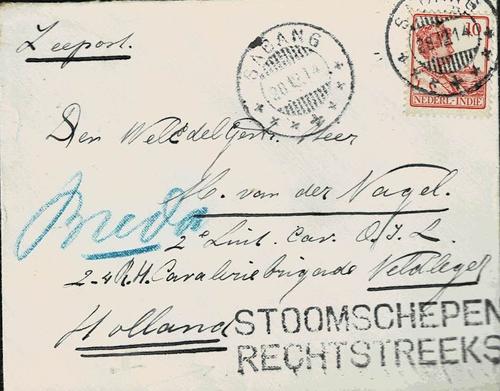 Zeepost.
SABANG
28.12.14
SABANG
28.12.14
10
NEDERL-INDIE
Den WelEdelGestr. Heer
H. van der Nagel.
Breda
2e Luit. Cav. O.I.L.
2-4 R.H. Cavaleriebrigade Veldleger
Holland
STOOMSCHEPEN
RECHTSTREEKS